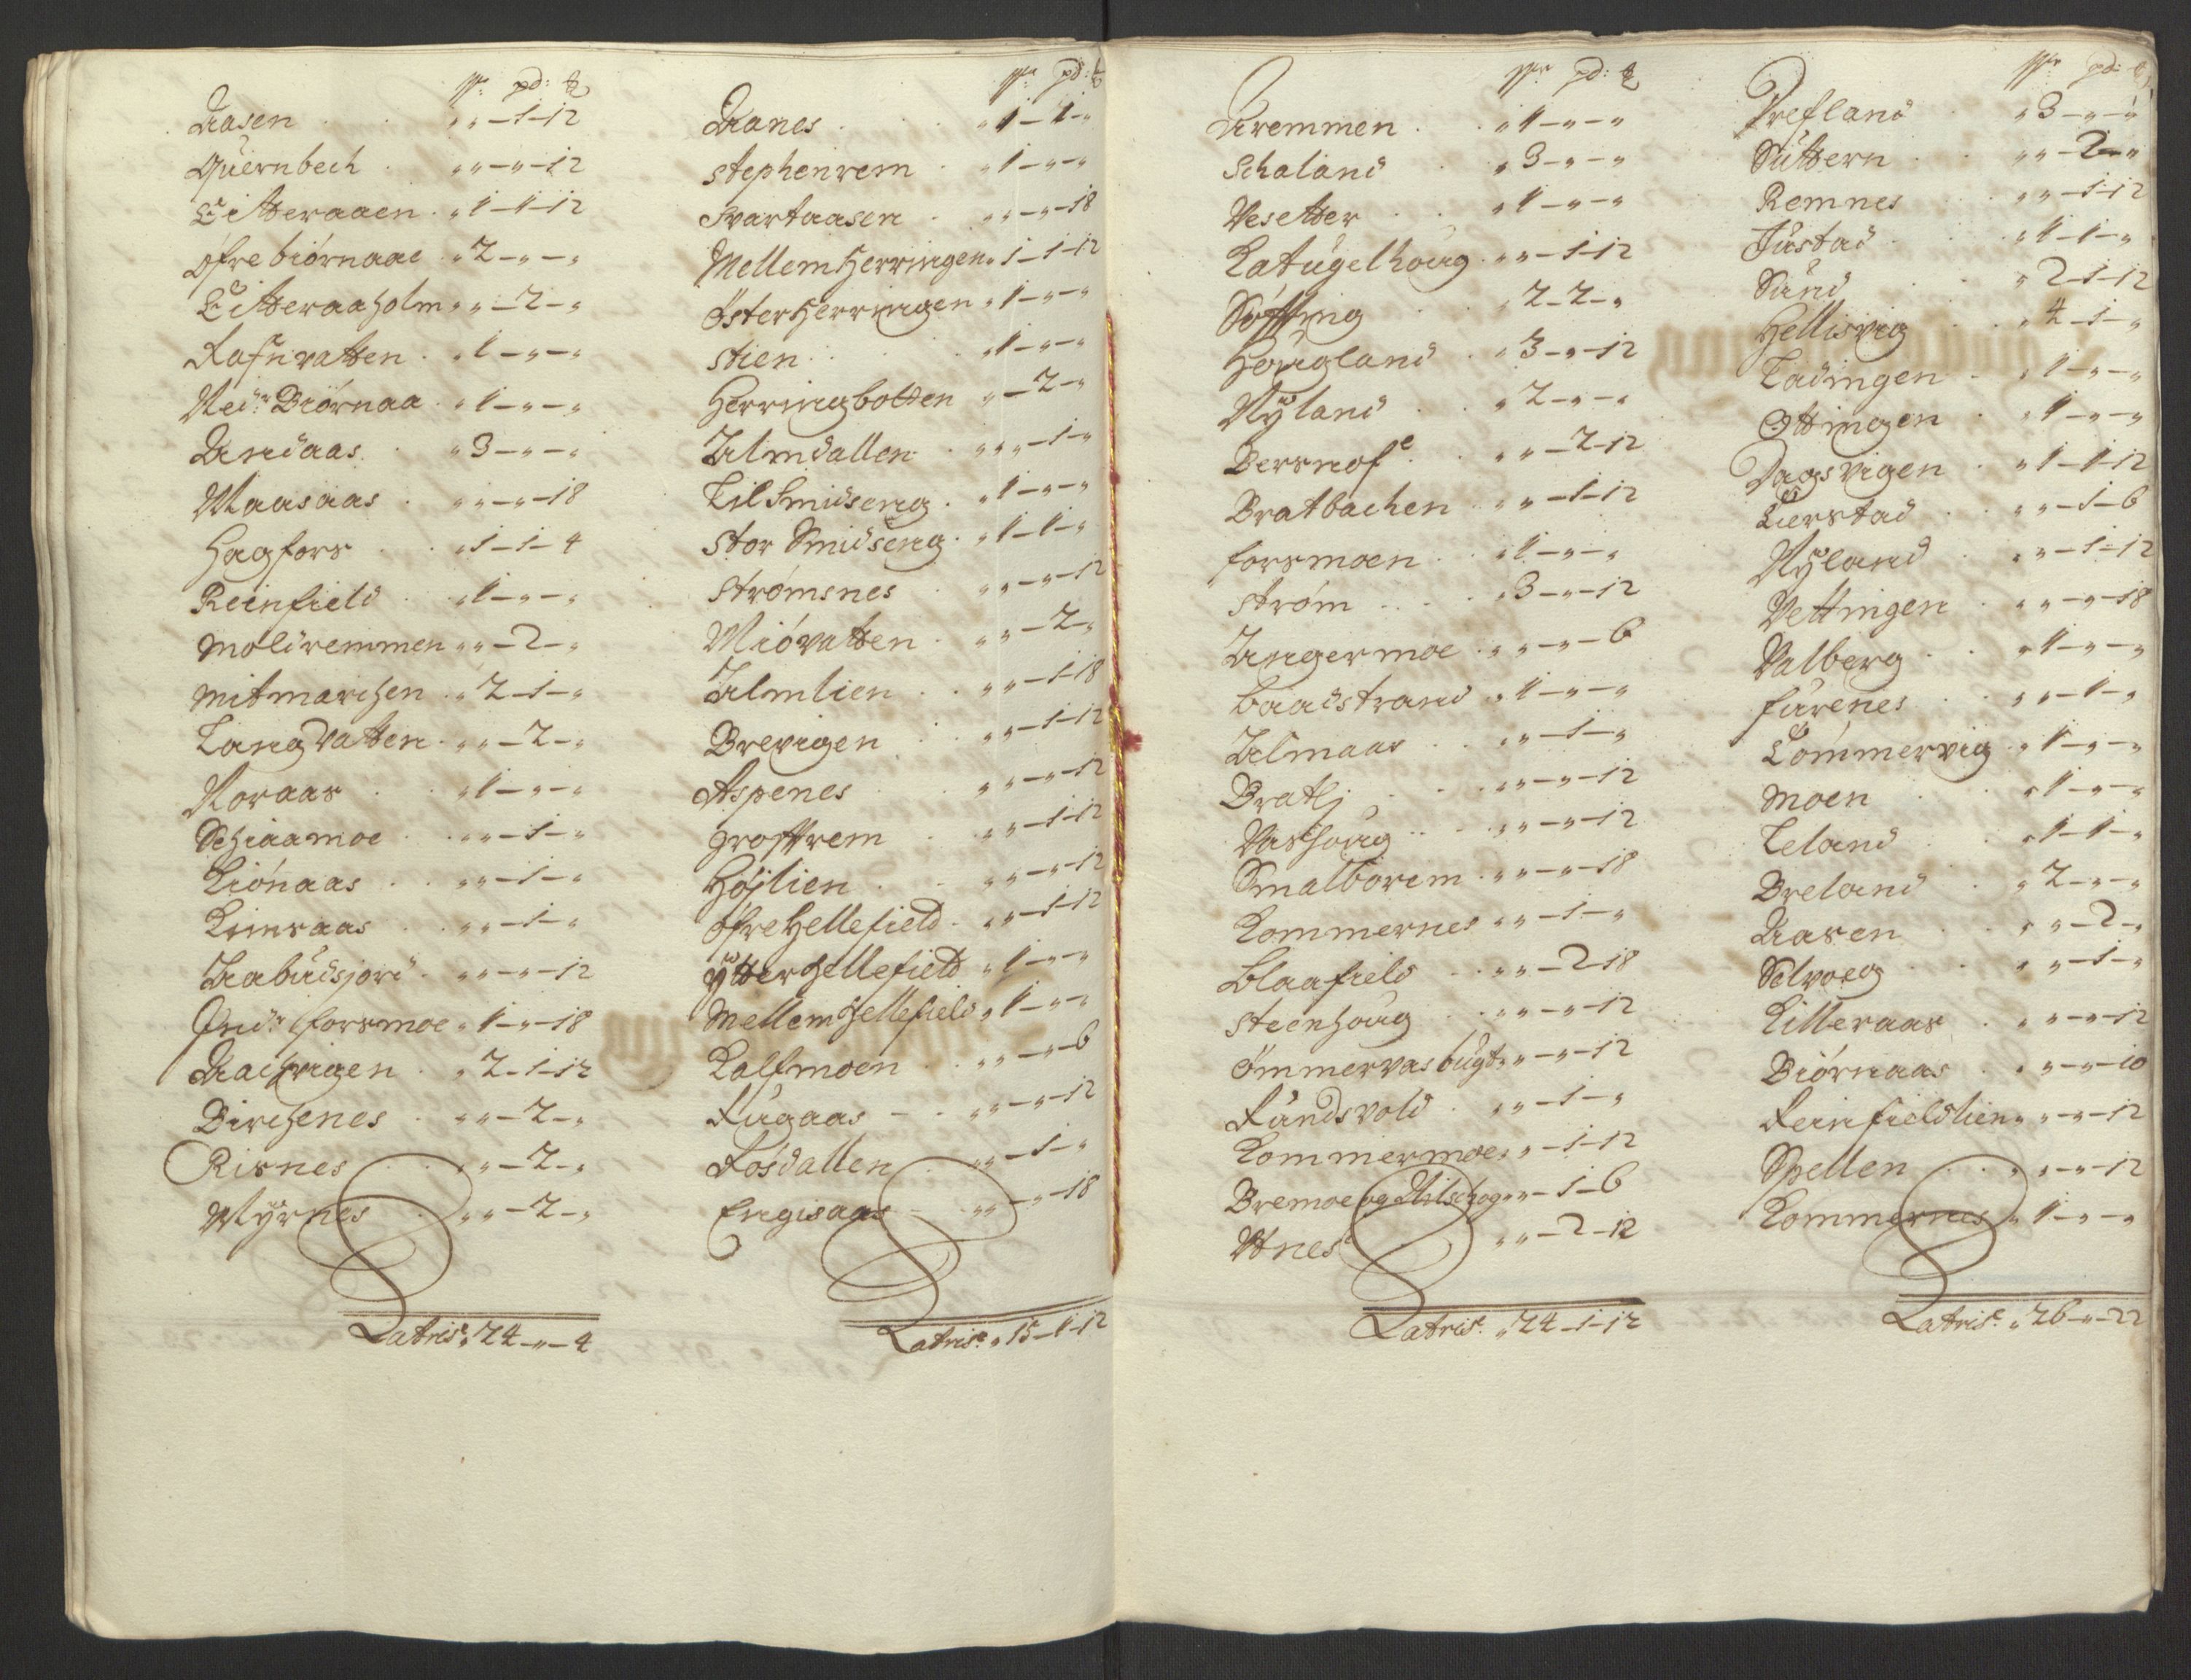 pd:
Aasen „ „ - 1 - 12
Quernbech „ „ - „ - 12
Litteraaen „ 1 - 1 - 12
Øfre biørnaae „ 2 - „ - „
Litteraaholm „ „ - 2 - „
Rafnvatten „ 1 - „ - „
Nedr Biørnaa „ 1 - „ - „
Andaas „ 3 - „ - „
Maasaas „ „ - „ - 18
Hagfors „ 1 - 1 - 4
Reinfield „ 1 - „ - „
Moldremmen „ „ - 2 - „
Mitmarchen „ 2 - 1 - „
Langvatten „ „ - 2 - „
Moraas „ 1 - „ - „
Schiaamoe „ „ - 1 - „
Liönaas „ „ - 1 - „
Krinsaas „ „ - 1 - „
Aabudsjord „ „ - „ - 12
Indr forsmoe „ 1 - „ - 18
Aachvigen „ 2 - 1 - 12
Birchenes „ „ - 2 - „
Risnes „ „ - 2 - „
Myrnes „ „ - 2 - „
Latris: „ 24 - „ - 4
pd:
Aanes „ 1 - 1 - „
Stephenrem „ 1 - „ - „
Svartaasen „ „ - „ - 18
Mellem Herringen „ 1 - 1 - 12
Øster Herringen „ 1 - „ - „
Stien „ 1 - „ - „
Herringbotten „ - 2 - „
Almdallen „ „ - 1 - „
Lil Smidseng „ 1 - „ - „
Stor Smidseng „ 1 - 1 - „
Strømsnes „ „ - „ - 12
Miövatten „ „ - 2 - „
Almlien „ „ - 1 - 18
Brevigen „ „ - 1 - 12
Aspenes „ „ - „ - 12
Groffrem „ „ - 1 - 12
Højlien „ „ - „ - 12
Øfre Hellefield „ „ - 1 - 12
Ytter Hellefield „ 1 - „ - „
Mellem Hellefield „ 1 - „ - „
Kalfmoen „ „ - „ - 6
Rugaas „ „ - „ - 12
Rösdallen „ „ - 1 - „
Engisaas „ „ - „ - 18
Latris: „ 15 - 1 - 12
pd:
Aremmen „ 1 - „ - „
Schaland „ 3 - „ - „
Vesetter „ 1 - „ - „
Katugelhoug „ „ - 1 - 12
Søffting „ 2 - 2 - „
Hougland „ 3 - „ - 12
Nyland „ 2 - „ - „
Bersnof „ „ - 2 - 12
Bratbachen „ „ - 1 - 12
Forsmoen „ 1 - „ - „
Strøm „ 3 - „ - 12
Angermoe „ „ - „ - 6
Baadstrand „ 1 - „ - „
Almaas „ „ - 1 - „
Bratlj „ „ - „ - 12
Vashoug „ „ - „ - 12
Smalborem „ „ - „ - 18
Kommernes „ „ - 1 - „
Blaafield „ „ - 2 - 18
Steenhoug „ „ - „ - 12
Ömmervasbugt „ „ - „ - 12
Rundsvold „ „ - 1 - „
Kommermoe „ „ - 1 - 12
Bremoe og Uilschog „ „ - 1 - 6
Utnes „ „ - 2 - 12
Latris: „ 24 - 1 - 12
pd:
Trefland „ 3 - „ - „
Suttern „ „ - 2 - „
Remnes „ „ - 1 - 12
Justad „ 1 - 1 - „
Sund „ 2 - 1 - 12
Hellisvig „ 4 - 1 - „
Ladingen „ 1 - „ - „
Ottingen „ 1 - „ - „
Dagsvigen „ 1 - 1 - 12
Lierstad „ „ - 1 - 6
Nyland „ „ - 1 - 12
Vettingen „ „ - „ - 18
Valberg „ 1 - „ - „
Furenes „ „ - 1 - „
Sommervig „ 1 - „ - „
Moen „ 1 - „ - „
Leland „ 1 - 1 - „
Breland „ 2 - „ - „
Aasen „ „ - 2 - „
Selvog „ „ - 1 - „
Litteraas „ „ - „ - 12
Biørnaas „ „ - „ - 10
Reinfieldlien „ „ - „ - 12
Spellen „ „ - „ - 12
Kommernes „ 1 - „ - „
Latris: „ 26 - „ - 22